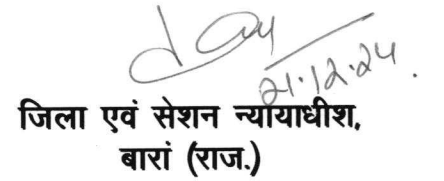 21.12.24.
जिला एवं सेशन न्यायाधीश,
बारां (राज.)